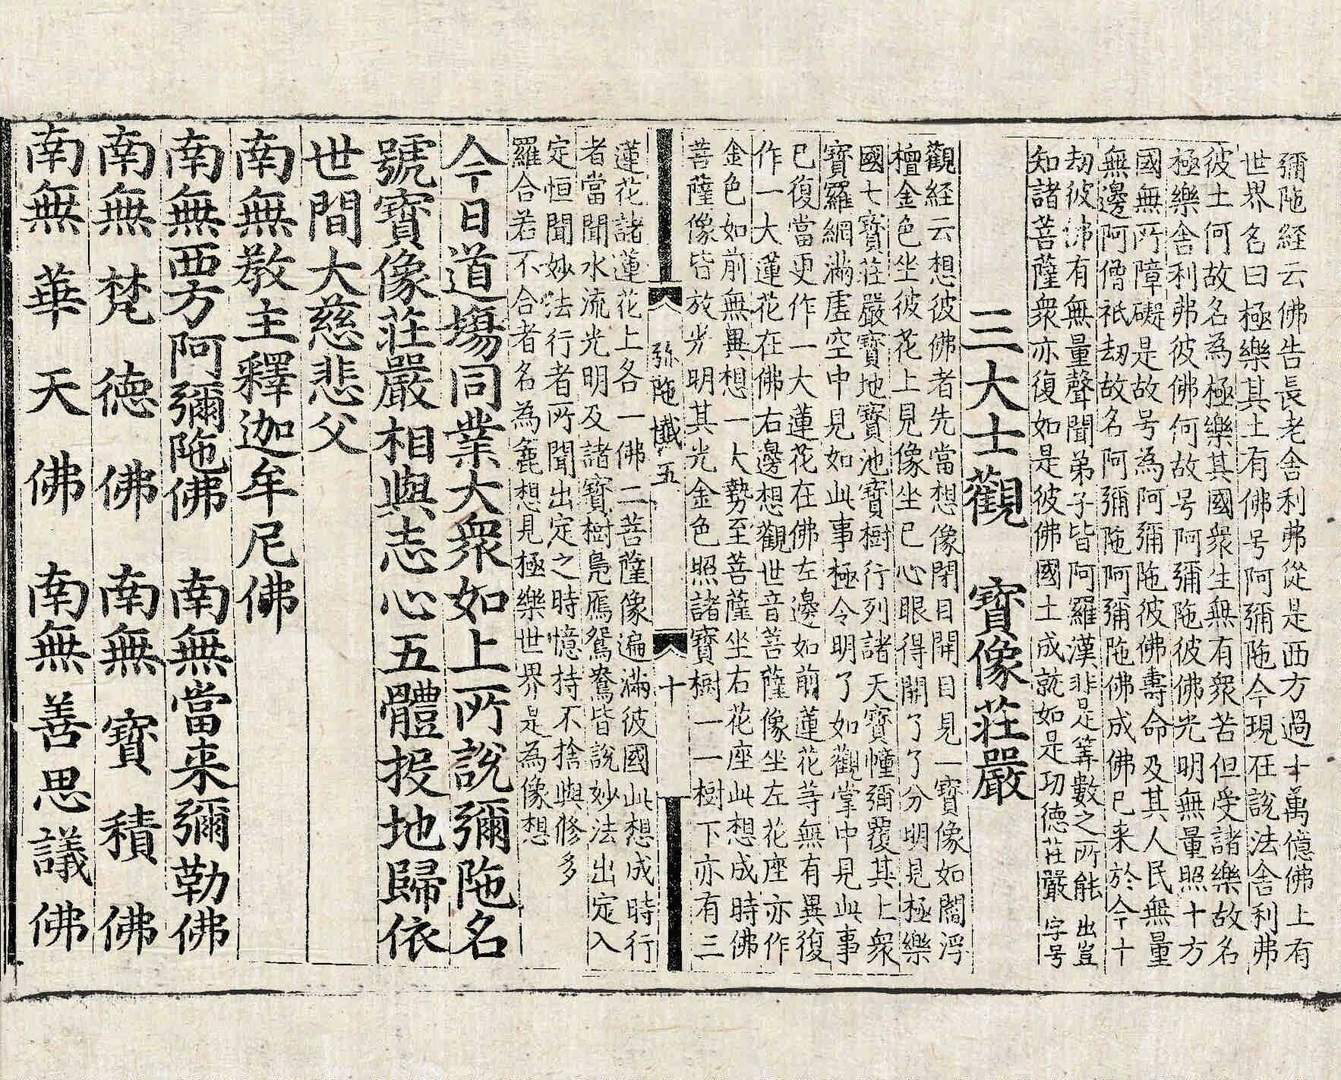 彌陁經云佛告長老舍利弗從是西方過十萬億佛上有
世界名曰極樂其土有佛号阿彌陁今現在說法舍利弗
彼土何故名為極樂其國衆生無有衆苦但受諸樂故名
極樂舍利弗彼佛何故号阿彌陁彼佛光明無量照十方
國無所障礙是故号為阿彌陁彼佛壽命及其人民無量
無邊阿僧祇劫故名阿彌陁阿彌陁佛成佛已来於今十
劫彼佛有無量聲聞弟子皆阿羅漢非是筭數之所能 出豈
知諸菩薩衆亦復如是彼佛國土成就如是功德莊嚴 字号
三大士觀 寶像莊嚴
觀経云想彼佛者先當想像閉目開目見一寶像如閻浮
檀金色坐彼花上見像坐已心眼得開了了分明見極樂
國七寶莊嚴寶地寶池寶樹行列諸天寶幢彌覆其上衆
寶羅網滿虛空中見如此事極令明了如觀掌中見此事
已復當更作一大蓮花在佛左邊如前蓮花等無有異復
作一大蓮花在佛右邊想觀世音菩薩像坐左花座亦作
金色如前無異想一大勢至菩薩坐右花座此想成時佛
菩薩像皆放光明其光金色照諸寶樹一一樹下亦有三
弥陁懺五 十
蓮花諸蓮花上各一佛二菩薩像遍滿彼國此想成時行
者當聞水流光明及諸寶樹鳧鴈鴛鴦皆說妙法出定入
定恒聞妙法行者所聞出定之時憶持不捨與修多
羅合若不合者名為麁想見極樂世界是為像想
今日道塲同業大衆如上所說彌陁名
號寶像莊嚴相與志心五體投地歸依
世間大慈悲父
南無教主釋迦牟尼佛
南無西方阿彌陁佛 南無當来彌勒佛
南無梵德佛 南無寶積佛
南無華天佛 南無善思議佛